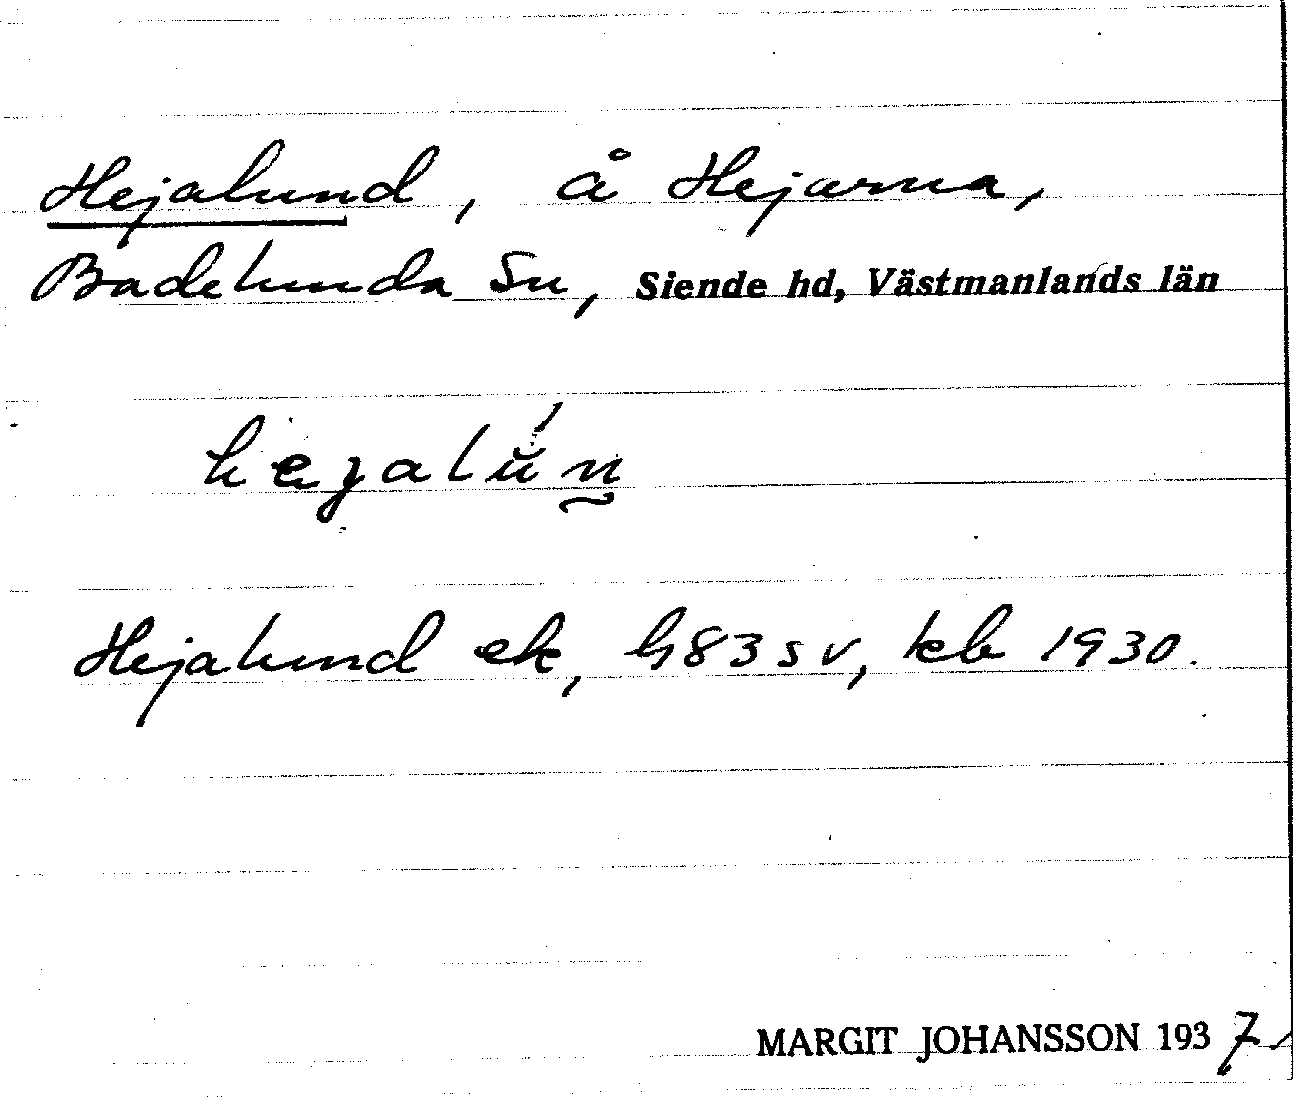 Hejalund, å Hejarna,
Badelunda Sn, Siende hd, Västmanlands län
Hejalund ek, h83sv, kb 1930.
MARGIT JOHANSSON 1937